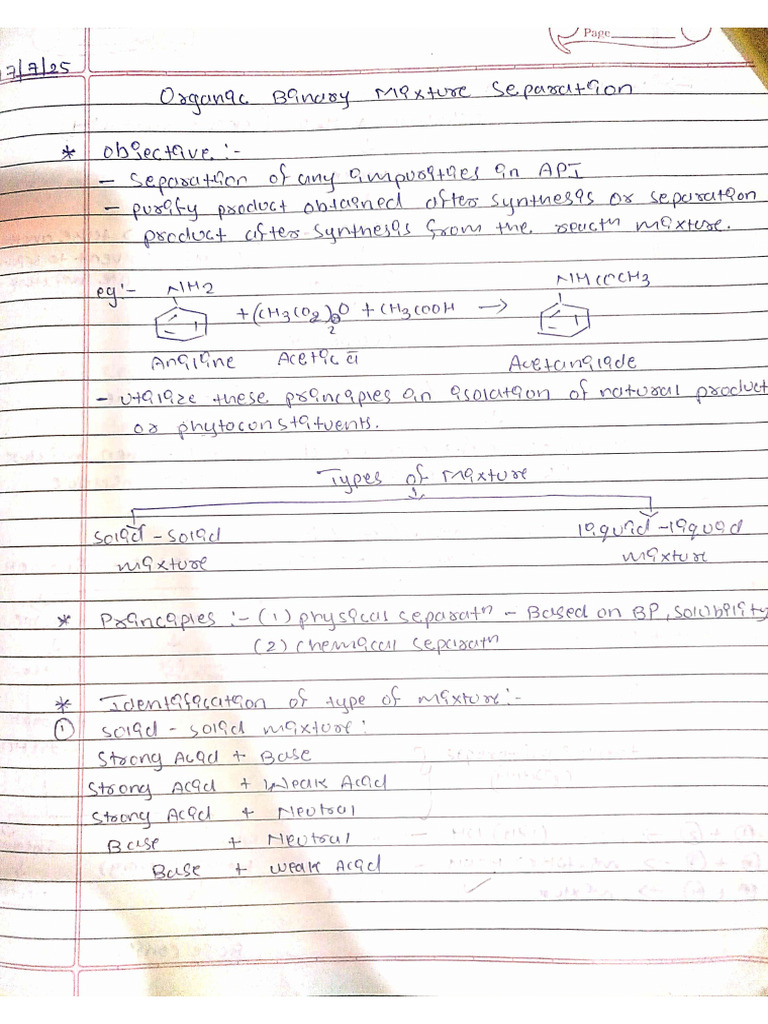 Page
7/7/25
Organic Binary Mixture Separation
* Objective :-
- Separation of any impurities in API
- purify product obtained after synthesis or separation
product after synthesis from the reactn mixture.
eg:- NH2 + (CH3CO2)2O + CH3COOH → NHCOCH3
Aniline Acetic Acetanilide
- Utilize these principles in isolation of natural product
or phytoconstituents.
Types of Mixture
Solid - Solid liquid - liquid
mixture mixture
* Principles :- (1) physical separatn - Based on BP, solubility
(2) chemical separatn
* Identification of type of mixture :-
① Solid - Solid mixture :
Strong Acid + Base
Strong Acid + Weak Acid
Strong Acid + Neutral
Base + Neutral
Base + Weak Acid